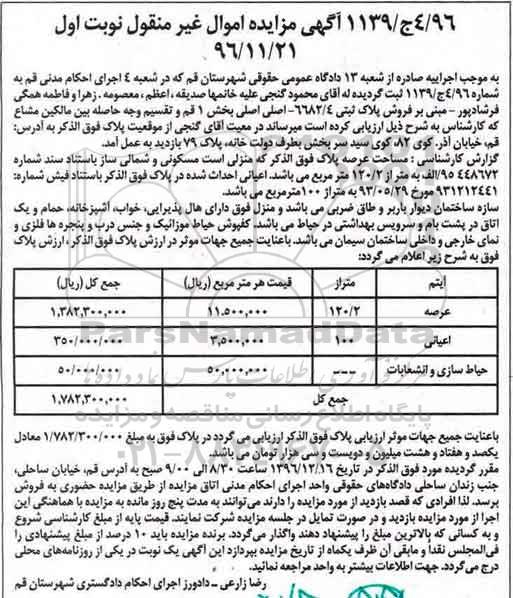 ۴/۹۶ج/۱۱۳۹ آگهی مزایده اموال غیر منقول نوبت اول
۹۶/۱۱/۲۱
به موجب اجراییه صادره از شعبه ۱۳ دادگاه عمومی حقوقی شهرستان قم که در شعبه ۴ اجرای احکام مدنی قم به
شماره ۴/۹۶ج/۱۱۳۹ ثبت گردیده له آقای محمود گنجی علیه خانمها صدیقه ، اعظم ، معصومه . زهرا و فاطمه همگی
فرشادپور - مبنی بر فروش پلاک ثبتی ۶۶۸۲/۴- اصلی اصلی بخش ۱ قم و تقسیم وجه حاصله بین مالکین مشاع
که کارشناس به شرح ذیل ارزیابی کرده است میرساند در معیت آقای گنجی از موقعیت پلاک فوق الذکر به آدرس:
قم، خیابان آذر. کوی ۸۲، کوی سید سر بخش بطرف دولت خانه، پلاک ۷۹ بازدید به عمل آمد.
گزارش کارشناسی : مساحت عرصه پلاک فوق الذکر که منزلی است مسکونی و شمالی ساز باستناد سند شماره
۴۴۸۶۷۲ ۹۵/الف به متر از ۱۲۰/۲ متر مربع می باشد. اعیانی احداث شده در پلاک فوق الذکر باستناد فیش شماره:
۹۳۱۲۱۲۴۴۱ مورخ ۹۳/۰۵/۲۹ به متراژ ۱۰۰مترمربع می باشد.
سازه ساختمان دیوار باربر و طاق ضربی می باشد و منزل فوق دارای هال پذیرایی، خواب، آشپزخانه، حمام و یک
اتاق در پشت بام و سرویس بهداشتی در حیاط می باشد. کفپوش حیاط موزائیک و جنس درب و پنجره ها فلزی و
نمای خارجی و داخلی ساختمان سیمان می باشد. باعنایت جمیع جهات موثر در ارزش پلاک فوق الذکر ، ارزش پلاک
فوق به شرح زیر اعلام می گردد:
آیتم متراژ قیمت هر متر مربع (ریال) جمع کل (ریال)
عرصه ۱۲۰/۲ ۱۱,۵۰۰,۰۰۰ ۱,۳۸۲,۳۰۰,۰۰۰
اعیانی ۱۰۰ ۳,۵۰۰,۰۰۰ ۳۵۰/۰۰۰/۰۰۰
حیاط سازی و انشعابات --- ۵۰,۰۰۰,۰۰۰ ۵۰/۰۰۰/۰۰۰
جمع کل ۱,۷۸۲,۳۰۰,۰۰۰
ParsNamadData
پایگاه اطلاع رسانی مناقصه و مزایده
باعنایت جمیع جهات موثر ارزیابی پلاک فوق الذکر ارزیابی می گردد در پلاک فوق به مبلغ ۱/۷۸۲/۳۰۰/۰۰۰ معادل
یکصد و هفتاد و هشت میلیون و دویست و سی هزار تومان می باشد.
مقرر گردیده مورد فوق الذکر در تاریخ ۱۳۹۶/۱۲/۱۶ ساعت ۸/۳۰ الی ۹/۰۰ صبح به آدرس قم، خیابان ساحلی،
جنب زندان ساحلی دادگاههای حقوقی واحد اجرای احکام مدنی اتاق مزایده از طریق مزایده حضوری به فروش
برسد. لذا افرادی که قصد بازدید از مورد مزایده را دارند می‌توانند به مدت پنج روز مانده به مزایده با هماهنگی این
اجرا از مورد مزایده بازدید و در صورت تمایل در جلسه مزایده شرکت نمایند. قیمت پایه از مبلغ کارشناسی شروع
و به کسانی که بالاترین مبلغ را پیشنهاد دهند واگذار می‌گردد. برنده مزایده باید ۱۰ درصد از مبلغ پیشنهادی را
فی‌المجلس نقدا و مابقی آن ظرف یکماه از تاریخ مزایده بپردازد این آگهی یک نوبت در یکی از روزنامه‌های محلی
درج می‌گردد. جهت اطلاعات بیشتر به واحد مراجعه نمائید.
رضا زارعی - دادورز اجرای احکام دادگستری شهرستان قم